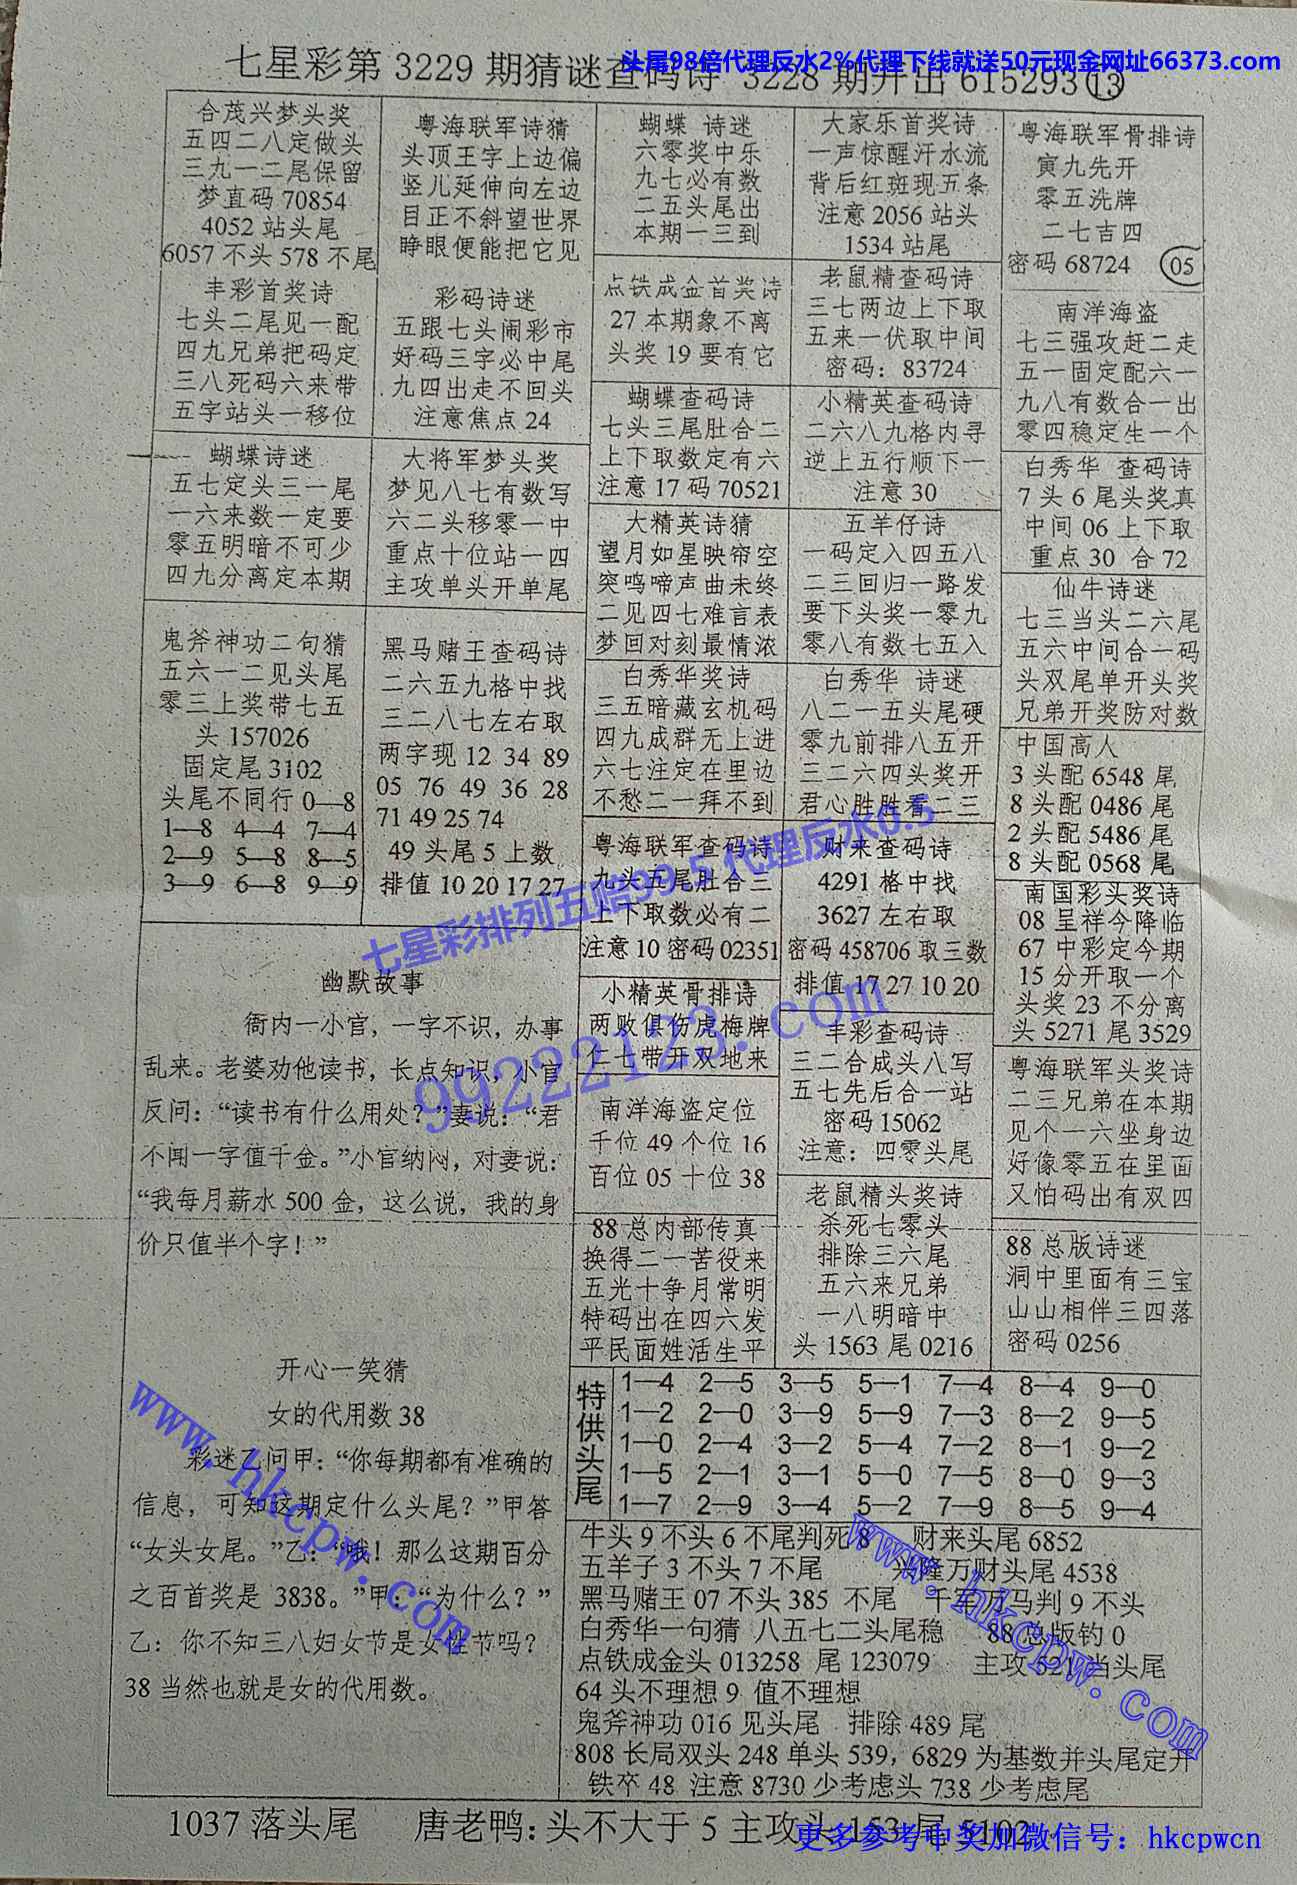 七星彩第 3229 期猜谜查码诗 3228 期开出 615293 13
头尾98倍代理反水2%代理下线就送50元现金网址66373.com
合茂兴梦头奖
五四二八定做头
三九一二尾保留
梦直码 70854
4052 站头尾
6057 不头 578 不尾
丰彩首奖诗
七头二尾见一配
四九兄弟把码定
三八死码六来带
五字站头一移位
蝴蝶诗迷
五七定头三一尾
一六来数一定要
零五明暗不可少
四九分离定本期
鬼斧神功二句猜
五六一二见头尾
零三上奖带七五
头 157026
固定尾 3102
头尾不同行 0—8
1—8 4—4 7—4
2—9 5—8 8—5
3—9 6—8 9—9
粤海联军诗猜
头顶王字上边偏
竖儿延伸向左边
目正不斜望世界
睁眼便能把它见
彩码诗迷
五跟七头闹彩市
好码三字必中尾
九四出走不回头
注意焦点 24
大将军梦头奖
梦见八七有数写
六二头移零一中
重点十位站一四
主攻单头开单尾
黑马赌王查码诗
二六五九格中找
三二八七左右取
两字现 12 34 89
05 76 49 36 28
71 49 25 74
49 头尾 5 上数
排值 10 20 17 27
蝴蝶 诗迷
六零奖中乐
九七必有数
二五头尾出
本期一三到
点铁成金首奖诗
27 本期象不离
头奖 19 要有它
蝴蝶查码诗
七头三尾肚合二
上下取数定有六
注意 17 码 70521
大精英诗猜
望月如星映帘空
突鸣啼声曲未终
二见四七难言表
梦回对刻最情浓
白秀华奖诗
三五暗藏玄机码
四九成群无上进
六七注定在里边
不愁二一拜不到
粤海联军查码诗
九头五尾肚合三
上下取数必有二
注意 10 密码 02351
小精英骨排诗
两败俱伤虎梅牌
仁七带开双地来
南洋海盗定位
千位 49 个位 16
百位 05 十位 38
88 总内部传真
换得二一苦役来
五光十争月常明
特码出在四六发
平民面姓活生平
大家乐首奖诗
一声惊醒汗水流
背后红斑现五条
注意 2056 站头
1534 站尾
老鼠精查码诗
三七两边上下取
五来一伏取中间
密码：83724
小精英查码诗
二六八九格内寻
逆上五行顺下一
注意 30
五羊仔诗
一码定入四五八
二三回归一路发
要下头奖一零九
零八有数七五入
白秀华 诗迷
八二一五头尾硬
零九前排八五开
三二六四头奖开
君心胜胜看二三
财来查码诗
4291 格中找
3627 左右取
密码 458706 取三数
排值 17 27 10 20
丰彩查码诗
三二合成头八写
五七先后合一站
密码 15062
注意：四零头尾
老鼠精头奖诗
杀死七零头
排除三六尾
五六来兄弟
一八明暗中
头 1563 尾 0216
粤海联军骨排诗
寅九先开
零五洗牌
二七吉四
密码 68724 05
南洋海盗
七三强攻赶二走
五一固定配六一
九八有数合一出
零四稳定生一个
白秀华 查码诗
7 头 6 尾头奖真
中间 06 上下取
重点 30 合 72
仙牛诗迷
七三当头二六尾
五六中间合一码
头双尾单开头奖
兄弟开奖防对数
中国高人
3 头配 6548 尾
8 头配 0486 尾
2 头配 5486 尾
8 头配 0568 尾
南国彩头奖诗
08 呈祥今降临
67 中彩定今期
15 分开取一个
头奖 23 不分离
头 5271 尾 3529
粤海联军头奖诗
二三兄弟在本期
见个一六坐身边
好像零五在里面
又怕码出有双四
88 总版诗迷
洞中里面有三宝
山山相伴三四落
密码 0256
幽默故事
衙内一小官，一字不识，办事
乱来。老婆劝他读书，长点知识，小官
反问：“读书有什么用处？”妻说：“君
不闻一字值千金。”小官纳闷，对妻说：
“我每月薪水 500 金，这么说，我的身
价只值半个字！”
开心一笑猜
女的代用数 38
彩迷乙问甲：“你每期都有准确的
信息，可知这期定什么头尾？”甲答
“女头女尾。”乙：“哦！那么这期百分
之百首奖是 3838。”甲：“为什么？”
乙：你不知三八妇女节是女性节吗？
38 当然也就是女的代用数。
特供头尾
1—4 2—5 3—5 5—1 7—4 8—4 9—0
1—2 2—0 3—9 5—9 7—3 8—2 9—5
1—0 2—4 3—2 5—4 7—2 8—1 9—2
1—5 2—1 3—1 5—0 7—5 8—0 9—3
1—7 2—9 3—4 5—2 7—9 8—5 9—4
牛头 9 不头 6 不尾判死 8 财来头尾 6852
五羊子 3 不头 7 不尾 兴隆万财头尾 4538
黑马赌王 07 不头 385 不尾 千军万马判 9 不头
白秀华一句猜 八五七二头尾稳 88 总版钓 0
点铁成金头 013258 尾 123079 主攻 521 当头尾
64 头不理想 9 值不理想
鬼斧神功 016 见头尾 排除 489 尾
808 长局双头 248 单头 539，6829 为基数并头尾定开
铁卒 48 注意 8730 少考虑头 738 少考虑尾
1037 落头尾 唐老鸭：头不大于 5 主攻头 153 尾 5102
七星彩排列五赔99.5 代理反水0.5
99222123.com
www.hkcpw.com
www.hkcpw.com
更多参考中奖加微信号：hkcpwcn